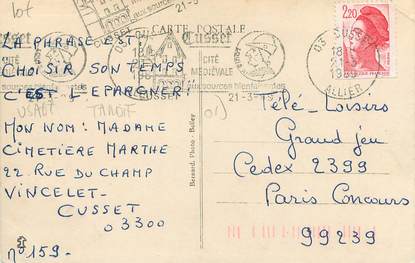 lot
CARTE POSTALE
Cusset
CITÉ
MÉDIÉVALE
CUSSET
21-3-
03 CUSSET
ALLIER
2,20
LA PHRASE EST,
CHOISIR SON TEMPS
C'EST L'EPARGNER!
MON NOM: MADAME
CIMETIÈRE MARTHE
22 RUE DU CHAMP
VINCELET-
CUSSET
03300
n° 159-
Bernard, Photo - Belley
Télé-Loisirs
Grand jeu
Cedex 2399
Paris Concours
99239